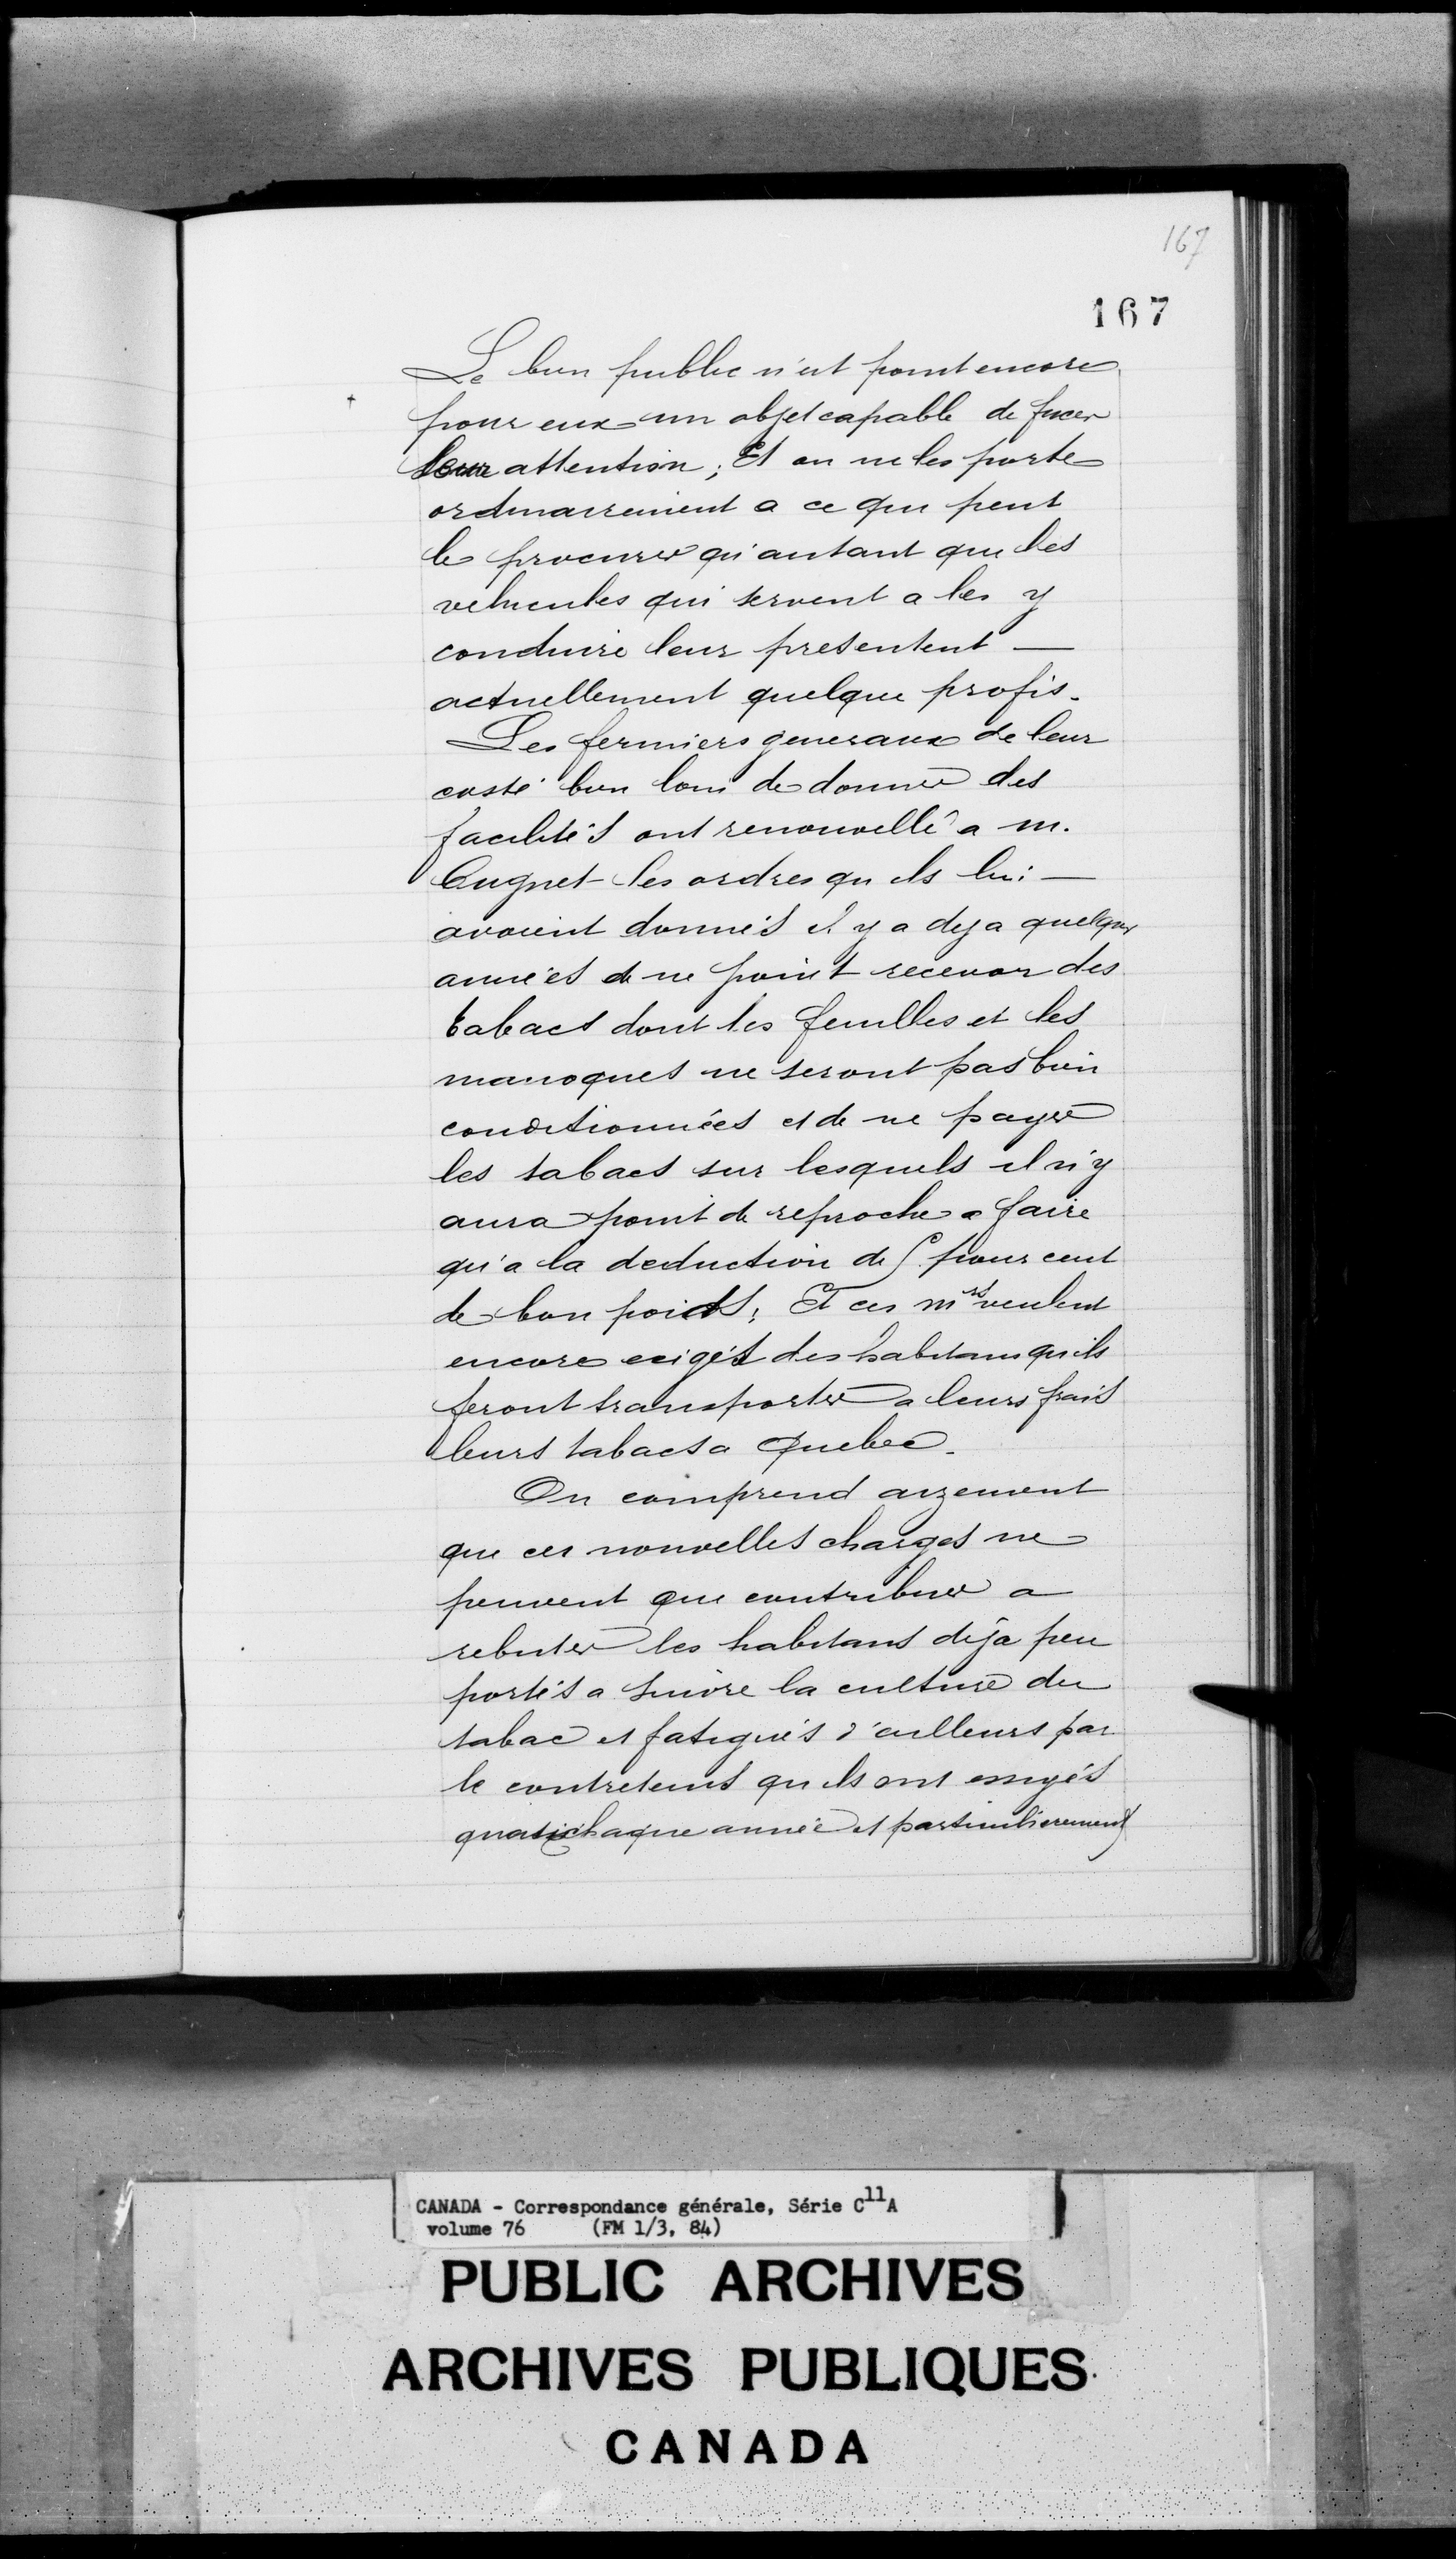 167
167
Le bien public n'est point encore
pour eux un objet capable de fixer
leur attention; Et on ne les porte
ordinairement a ce qui peut
le procurer qu'autant que les
vehicules qui servent a les y
conduire leur presentent —
actuellement quelque profis.
Les fermiers generaux de leur
costé bien loin de donner des
facilités ont renouvellé a m.
Cugnet les ordres qu ils lui —
avoient donnés il y a deja quelques
années de ne point recevoir des
tabacs dont les feuilles et les
manoques ne seront pas bien
conditionnées et de ne payer
les tabacs sur lesquels il n'y
aura point de reproche a faire
qu'a la deduction de 5 pour cent
de bon poids; Et ces mrs veulent
encore exigés des habitans qu ils
feront transporter a leurs frais
leurs tabacs a Quebec.
On comprend aizement
que ces nouvelles charges ne
peuvent que contribuer a
rebuter les habitans déja peu
portés a suivre la culture du
tabac et fatigués d'ailleurs par
le contretems qu ils ont essuyés
quasi chaque année et particulierement
CANADA - Correspondance générale, Série C11A
volume 76 (FM 1/3, 84)
PUBLIC ARCHIVES
ARCHIVES PUBLIQUES
CANADA